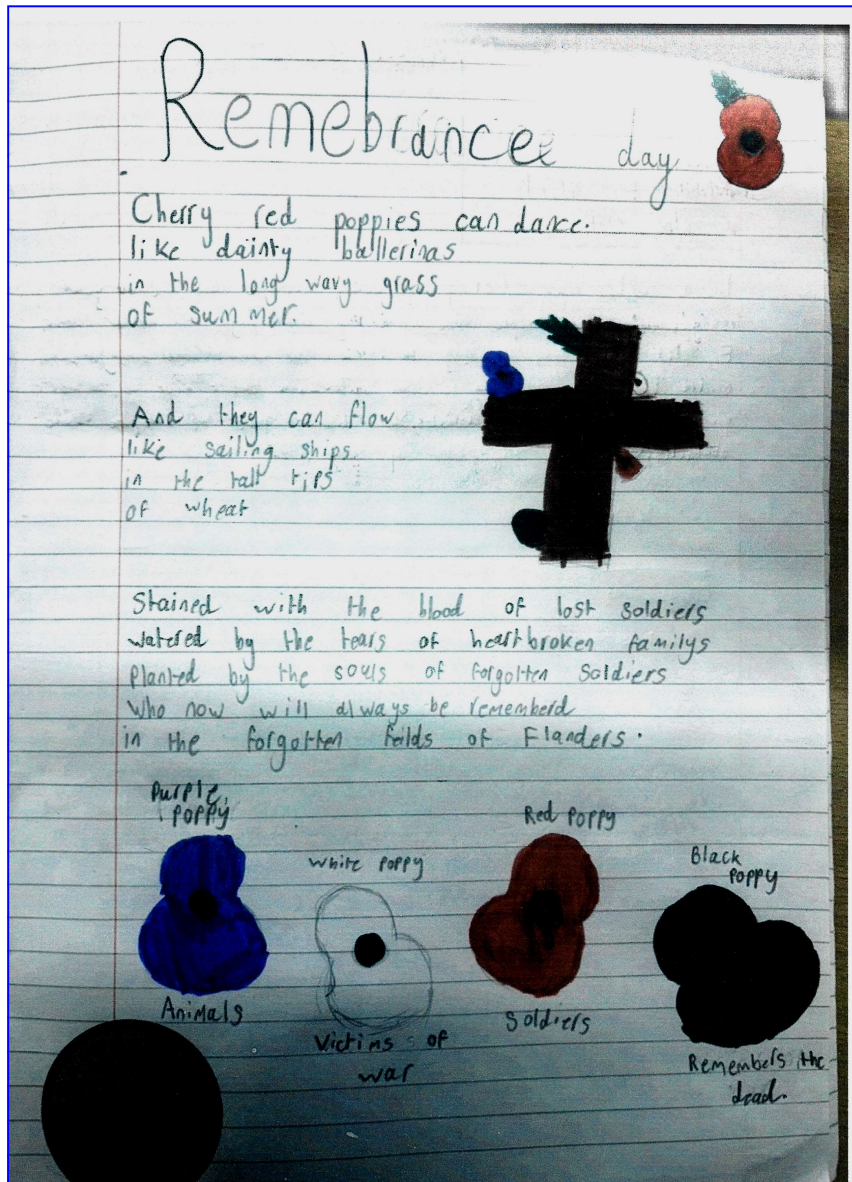 Remebrance day
Cherry red poppies can dance.
like dainty ballerinas
in the long wavy grass
of summer.
And they can flow
like sailing ships
in the tall tips
of wheat
Stained with the blood of lost soldiers
watered by the tears of heartbroken familys
Planted by the souls of forgotten Soldiers
Who now will always be rememberd
in the forgotten feilds of Flanders.
Purple poppy
Animals
White poppy
Victims of war
Red poppy
Soldiers
Black poppy
Remembers the dead.